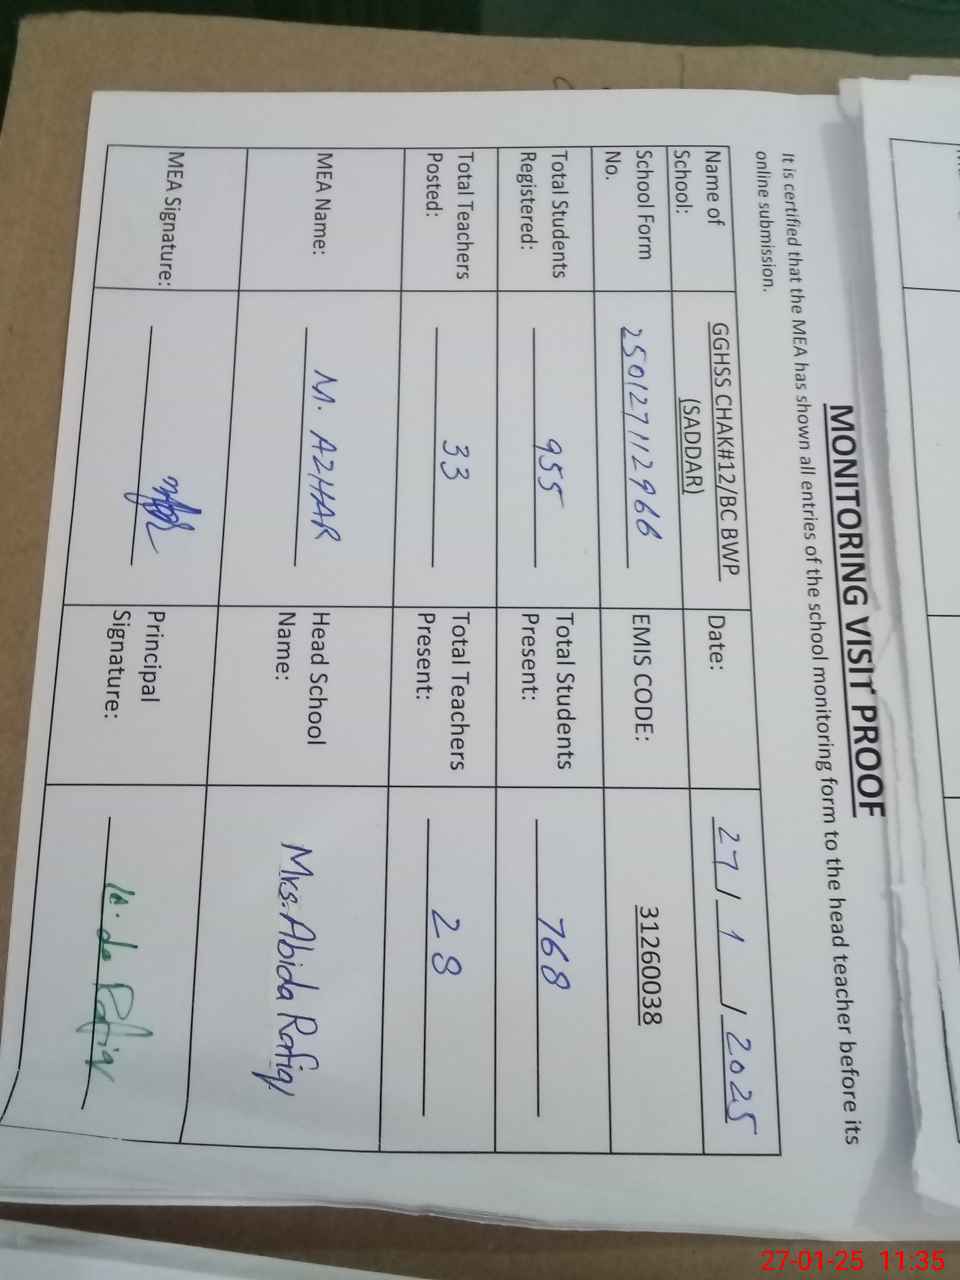 MONITORING VISIT PROOF
It is certified that the MEA has shown all entries of the school monitoring form to the head teacher before its
online submission.
Name of School: GGHSS CHAK#12/BC BWP (SADDAR) Date: 27/1/2025
School Form No. 250127112966 EMIS CODE: 31260038
Total Students Registered: 955 Total Students Present: 768
Total Teachers Posted: 33 Total Teachers Present: 28
MEA Name: M. AZHAR Head School Name: Mrs. Abida Rafiq
MEA Signature: Principal Signature: Rafiq
27-01-25 11:35